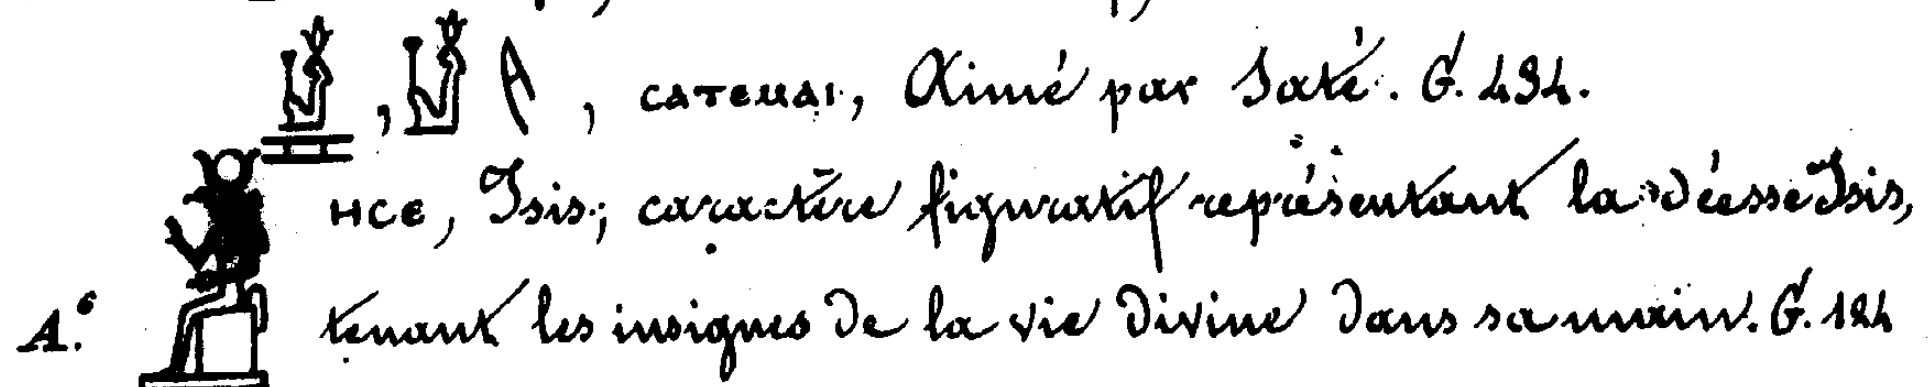 , , ⲥⲁⲧⲉⲙⲁⲓ, Aimé par Saté. G. 434.
ⲏⲥⲉ, Isis; caractère figuratif représentant la déesse Isis,
A.⁶ tenant les insignes de la vie divine dans sa main. G. 124